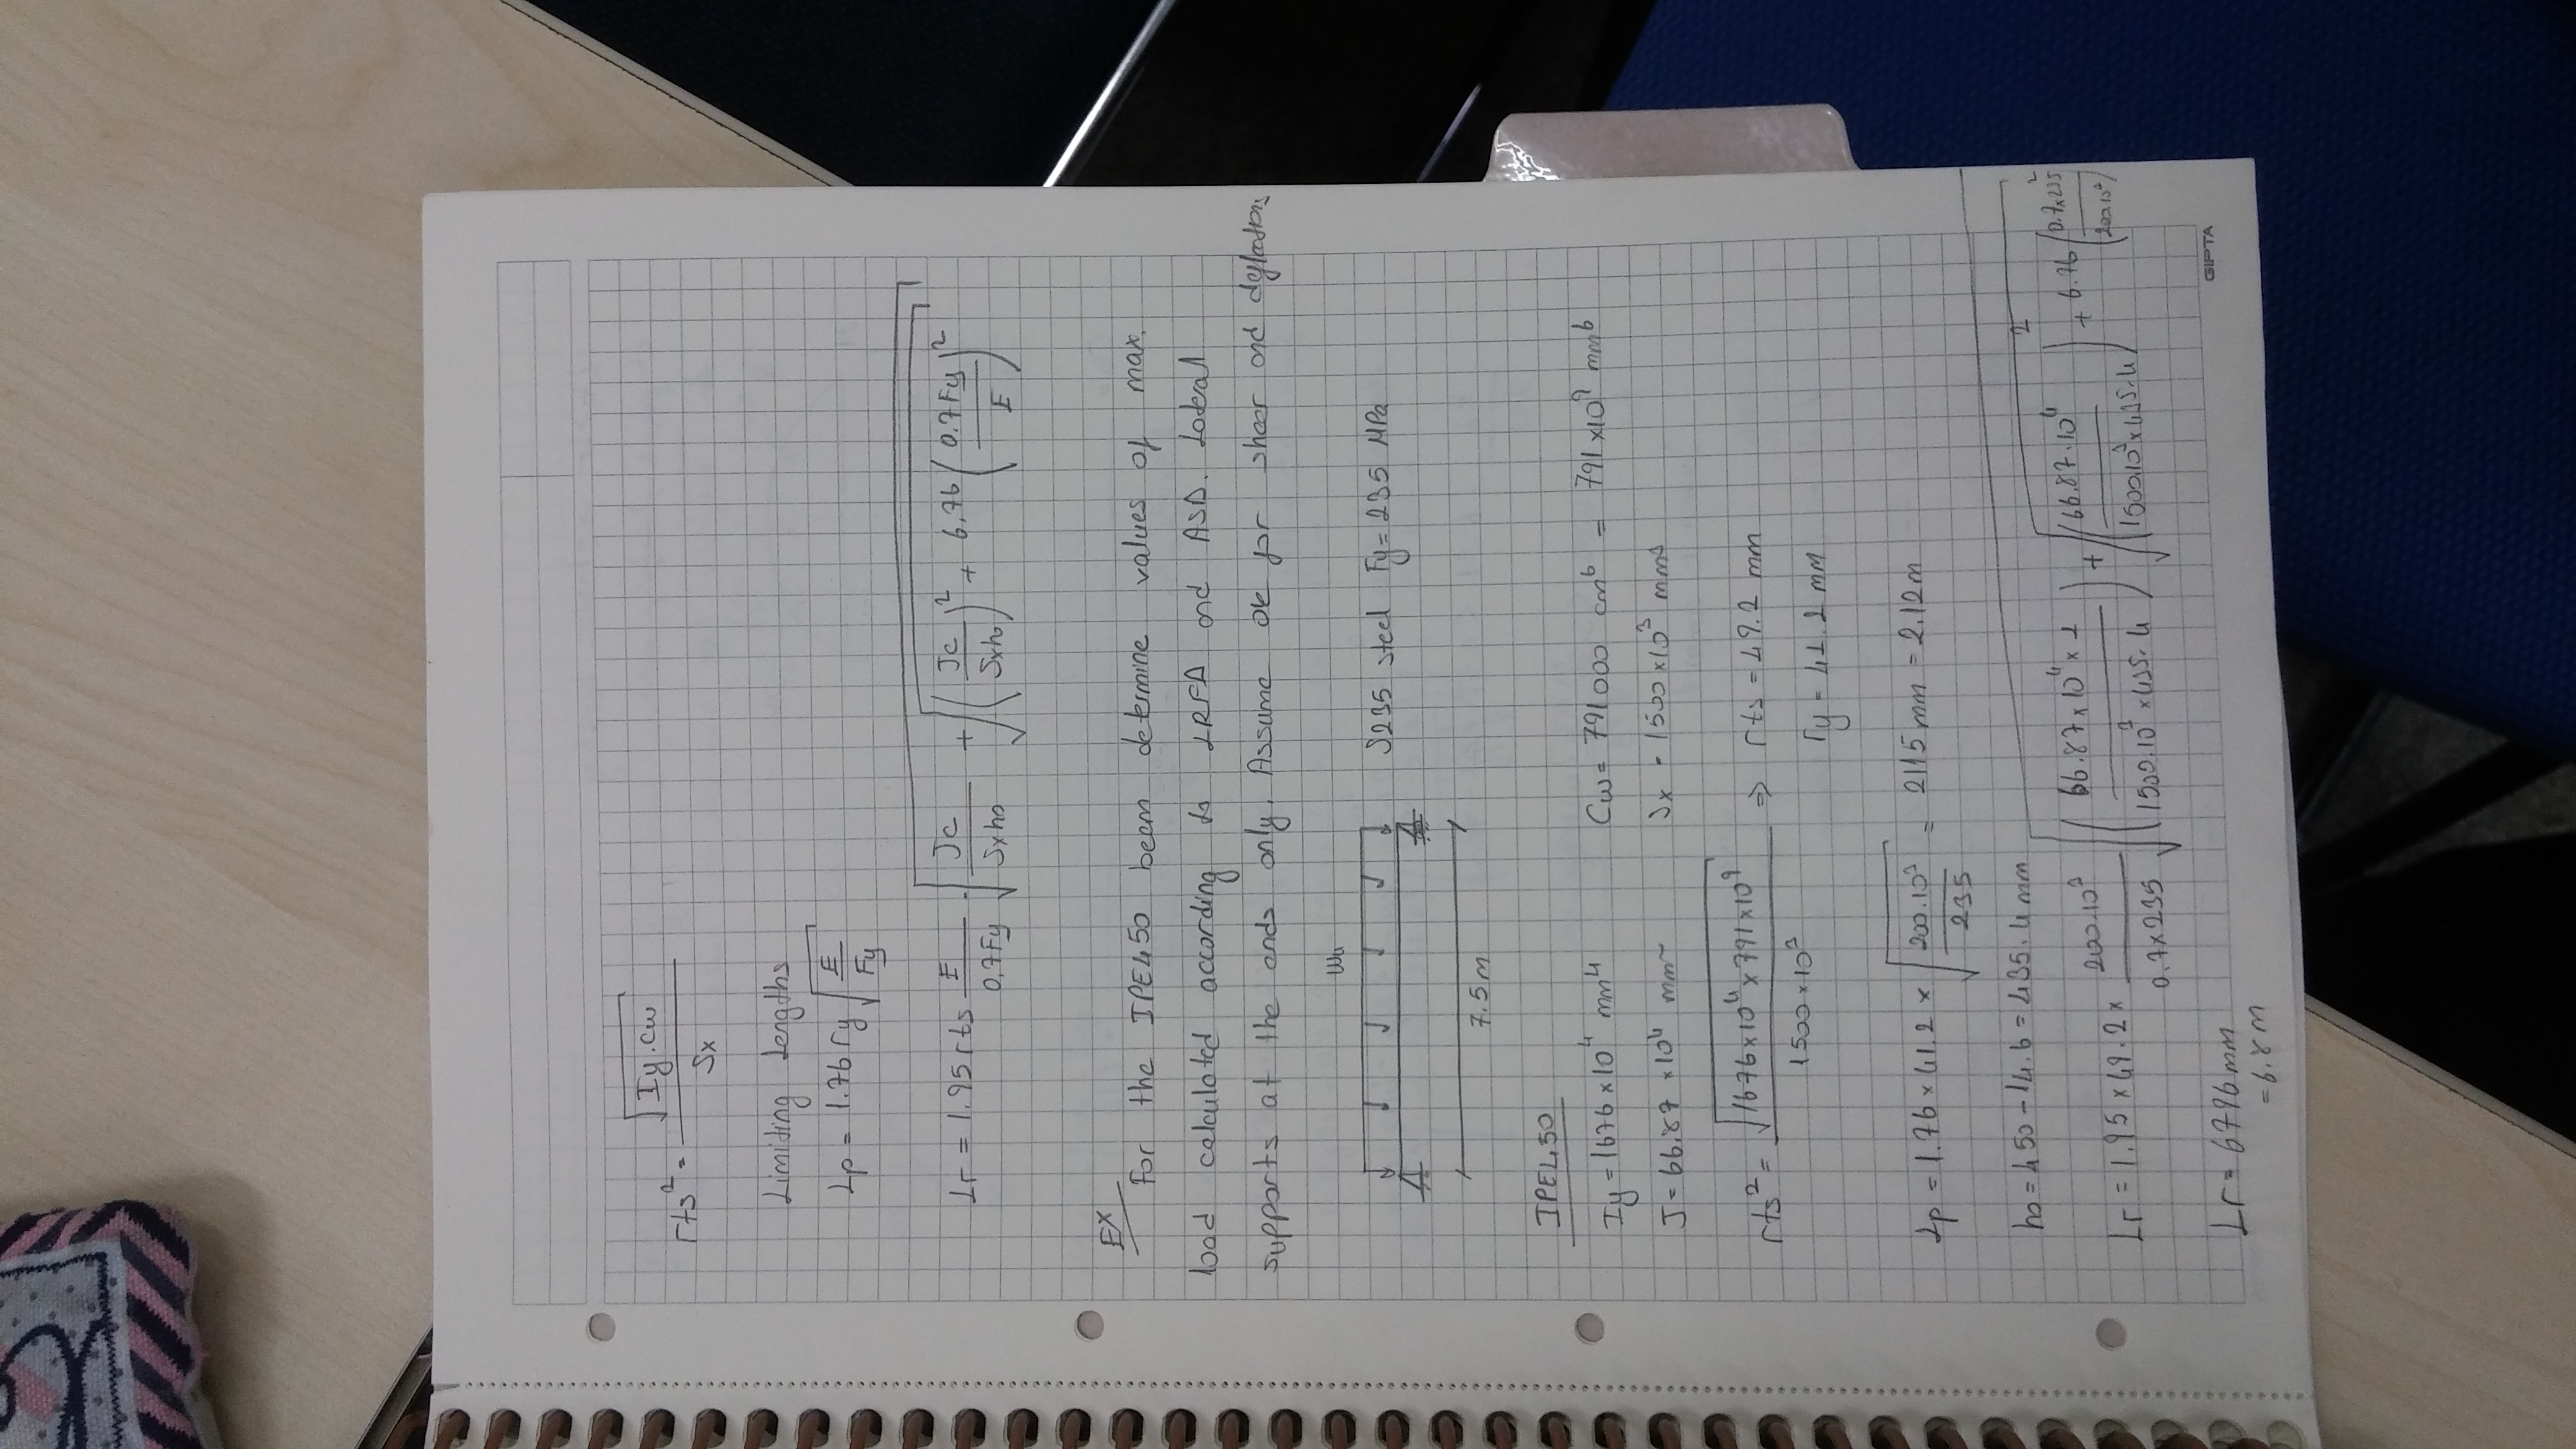 rts² = √(Iy.Cw) / Sx
Limiting Lengths
Lp = 1.76 ry √(E / Fy)
Lr = 1.95 rts E / 0,7Fy . √(Jc / Sxho + √((Jc / Sxho)² + 6,76 (0.7Fy / E)²))
EX
For the IPE450 beam determine values of max.
load calculated according to LRFD and ASD. Lateral
supports at the ends only. Assume ok for shear and deflections
Wu
S235 steel Fy = 235 MPa
7.5m
IPE450
Iy = 1676 x 10⁴ mm⁴ Cw = 791000 cm⁶ = 791 x 10⁹ mm⁶
J = 66.87 x 10⁴ mm Sx = 1500 x 10³ mm³
rts² = √(1676 x 10⁴ x 791 x 10⁹) / 1500 x 10³ ⇒ rts = 49.2 mm
ry = 41.2 mm
Lp = 1.76 x 41.2 x √(200.10³ / 235) = 2115 mm = 2.12m
ho = 450 - 14.6 = 435.4 mm
Lr = 1.95 x 49.2 x 200.10³ / 0.7x235 √((66.87 x 10⁴ x 1 / 1500.10³ x 435.4) + √((66.87.10⁴ / 1500.10³ x 435.4)² + 6.76 (0.7x235 / 200.10³)²))
Lr = 6796 mm
= 6.8 m
GIPTA